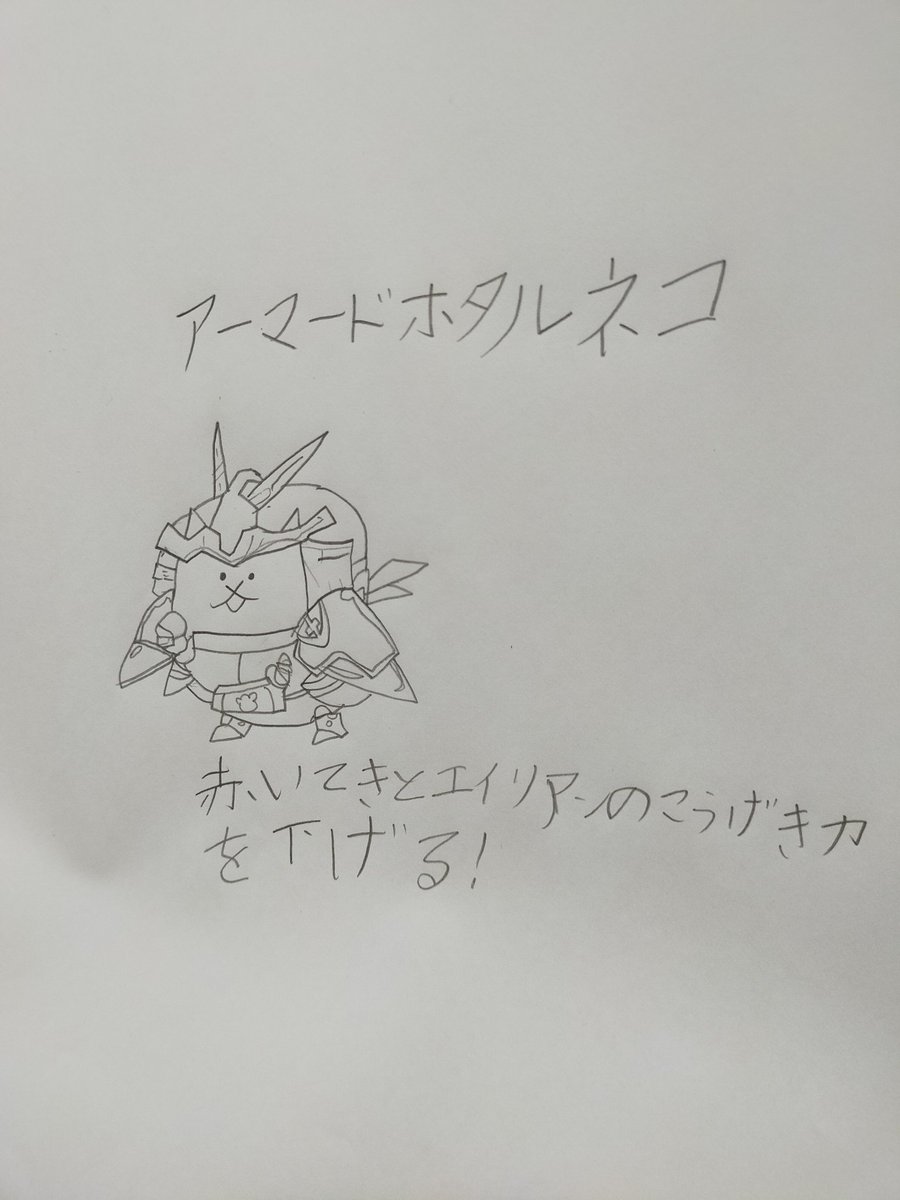 アーマードホタルネコ
赤いてきとエイリアンのこうげき力
を下げる！